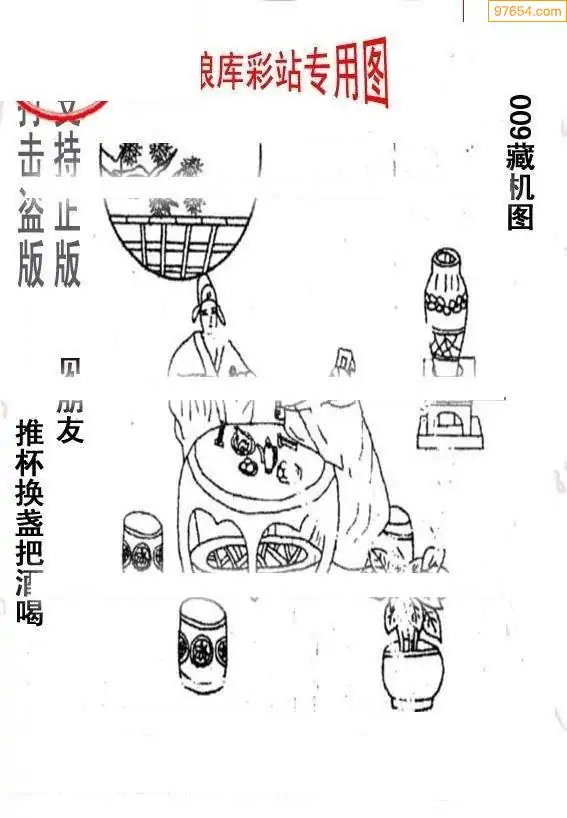 97654.com
库彩站专用图
009藏机图
支持正版
打击盗版
见朋友
推杯换盏把酒喝